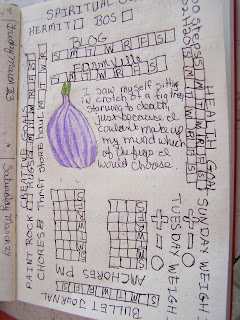 SPIRITUAL
HERMIT BOS
BLOG
S M T W R F S
Farmville
S M T W R F S
I saw myself sitting
in crotch of a fig tree
starving to death,
just because I
couldn't make up
my mind which
of the figs I
would choose.
CREATIVE GOALS
PAINT ROCK
CHORES
Thrift store haul
AM CHORES PM
BULLET JOURNAL
S M T W R F S
HEALTH GOAL
S M T W R F S
SUNDAY WEIGH
TUESDAY WEIGH
Friday March 23
Saturday March